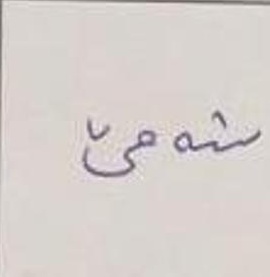 شەمێ